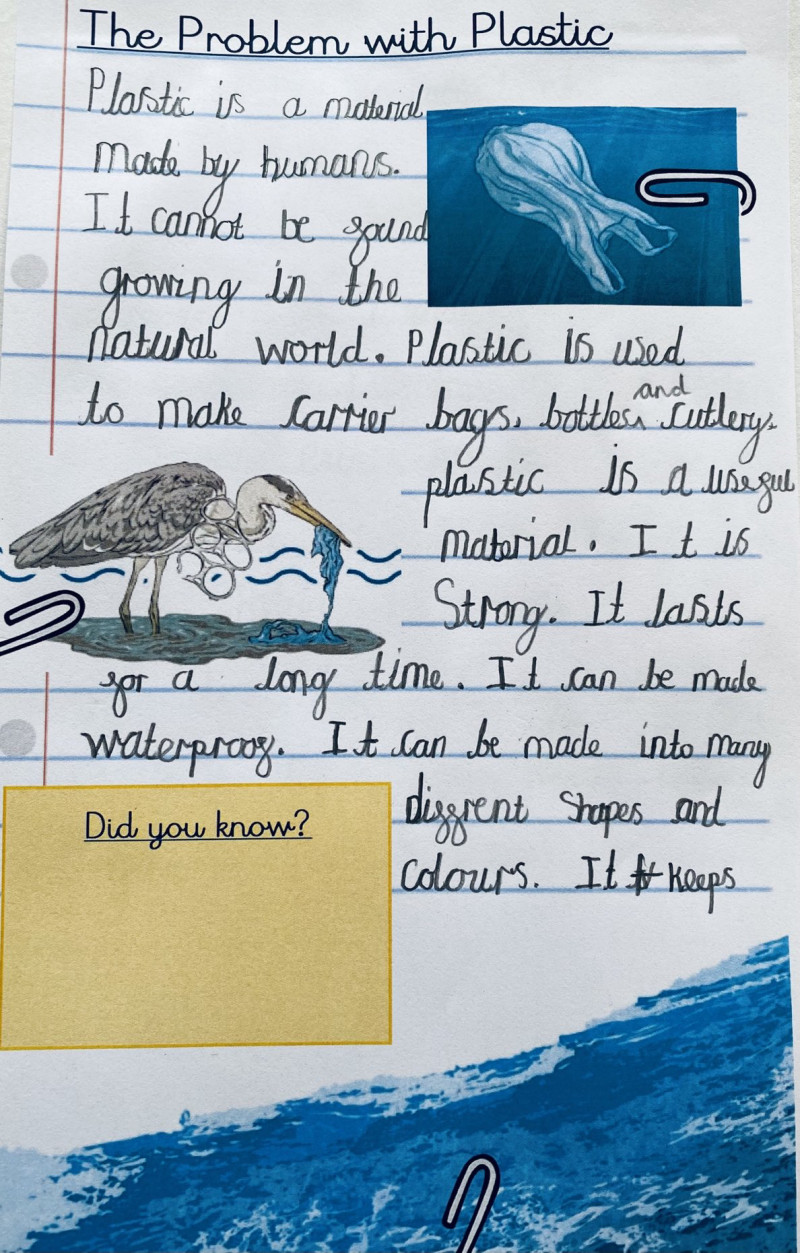 The Problem with Plastic
Plastic is a material
made by humans.
It cannot be found
growing in the
natural world. Plastic is used
to make carrier bags, bottles and cutlery.
plastic is a useful
material. It is
Strong. It lasts
for a long time. It can be made
waterproof. It can be made into many
diffrent shapes and
colours. It keeps
Did you know?